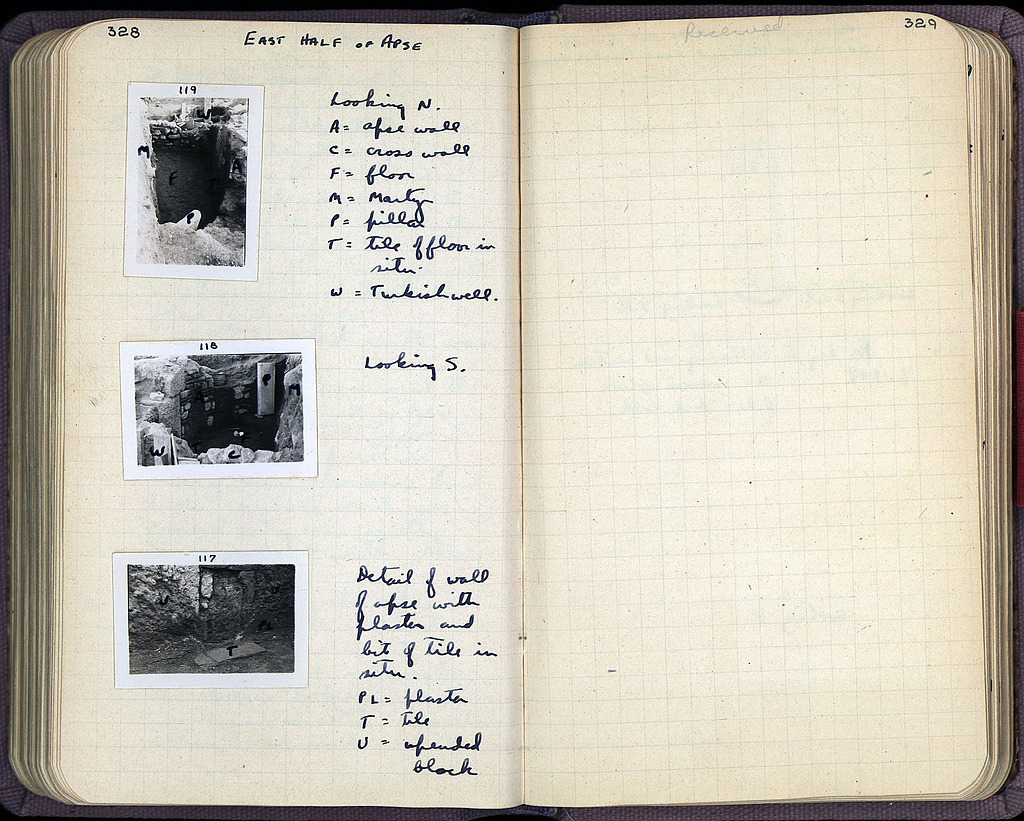 328
EAST HALF OF APSE
119
W
M
A
F
T
P
Looking N.
A = apse wall
C = cross wall
F = floor
M = Martyr
P = pillar
T = tile of floor in
situ.
W = Turkish well.
118
P
M
A
W
T
C
Looking S.
117
U
U
PL
T
Detail of wall
of apse with
plaster and
bit of tile in
situ.
PL = plaster
T = tile
U = upended
block
329
Reserved